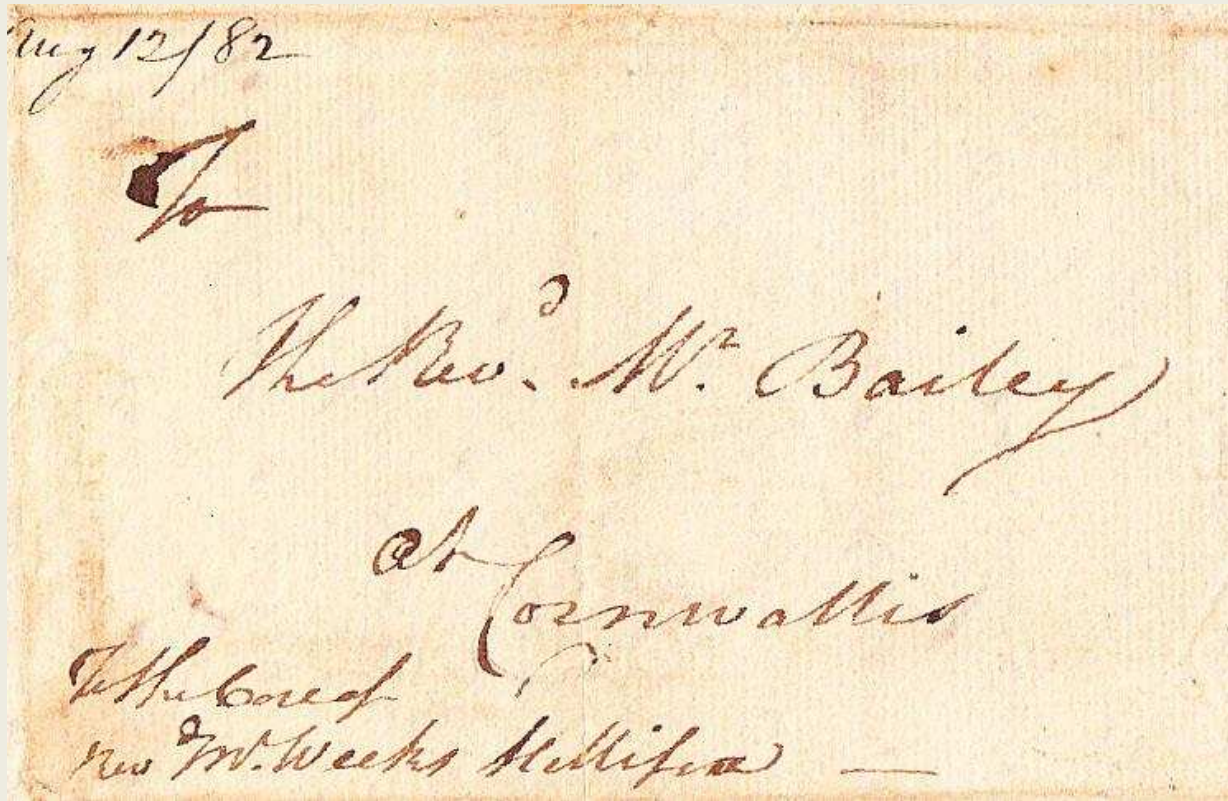 Aug 12/82
To
The Revd. Mr. Bailey
at Cornwallis
To the Care of
Revd Mr. Weeks Hallifax —